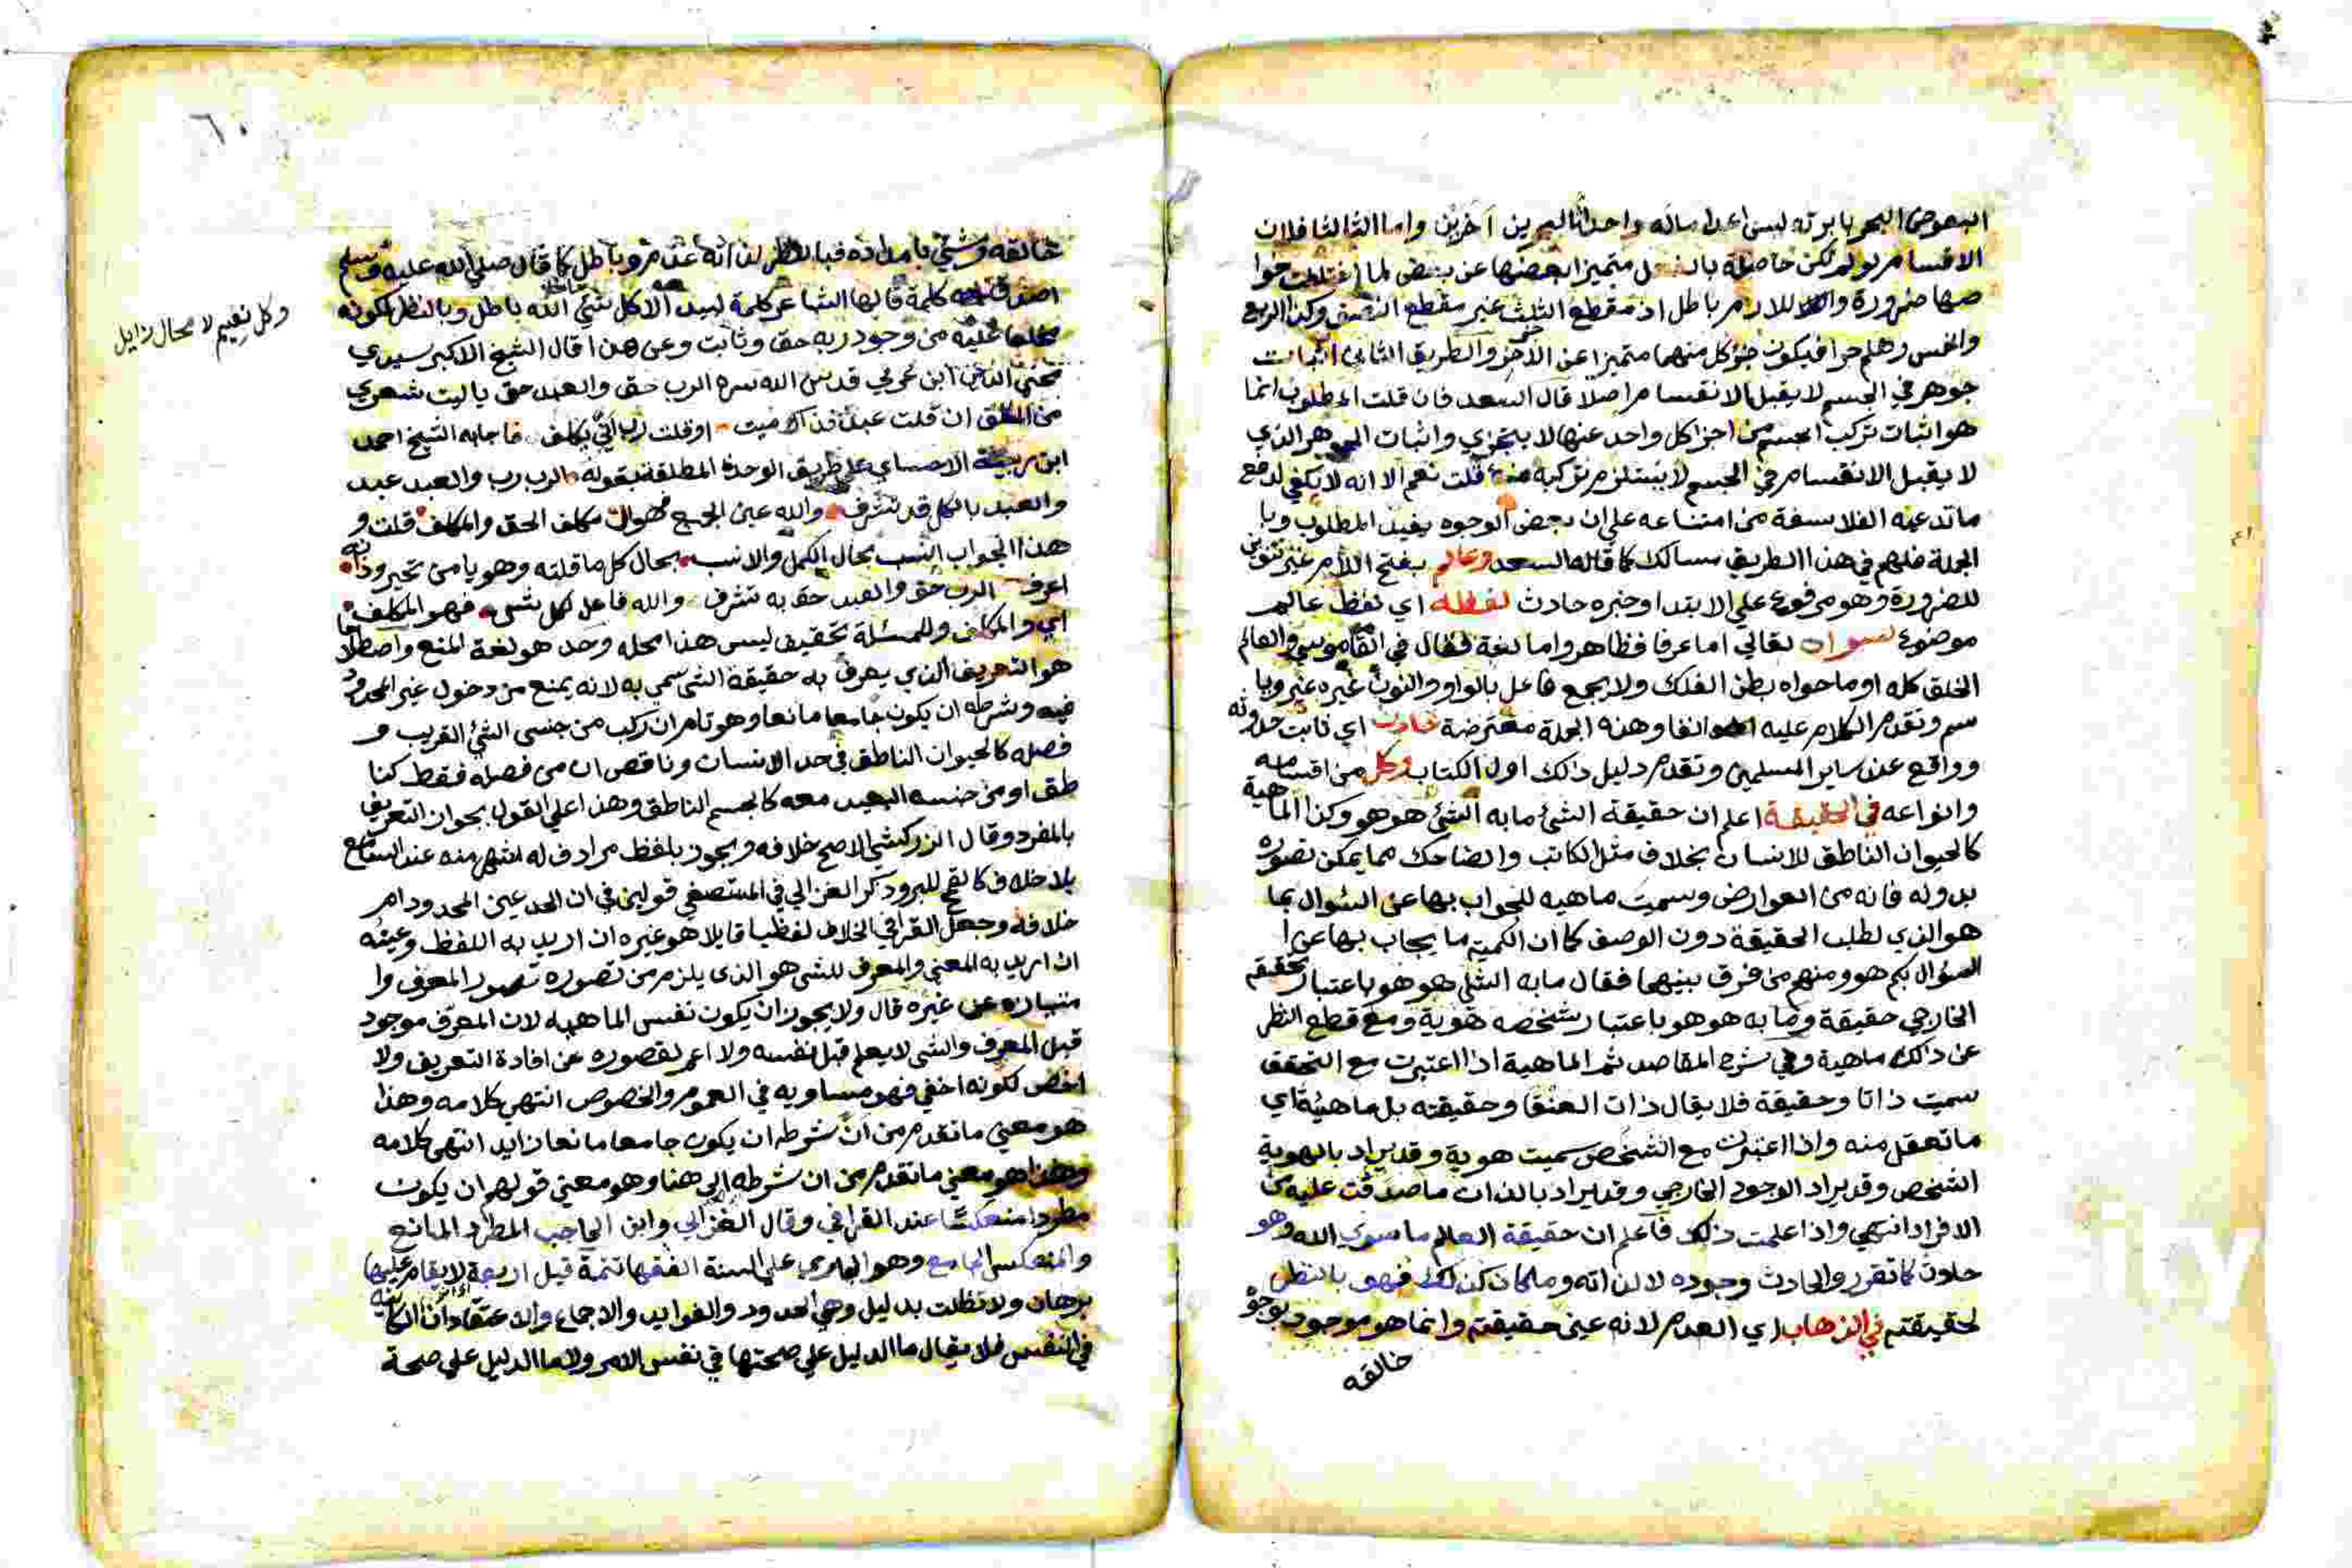 البعوض البحر بابرته ليس اعداماله واحداثا لبحرين آخرين واما الثالث فلان
الاقسام لو لم تكن حاصلة بالفعل متميزا بعضها عن بعض لما اختلفت خوا
صها ضرورة واللازم باطل اذ مقطع الثلث غير مقطع النصف وكذا الربع
والخمس وهلم جرا فيكون جزؤ كل منهما متميزا عن الاخر والطريق الثاني اثبات
جوهر في الجسم لا يقبل الانقسام اصلا قال السعد فان قلت المطلوب انما
هو اثبات تركب الجسم من اجزا كل واحد عنها لا يتجزي واثبات الجوهر الذي
لا يقبل الانقسام في الجسم لا يستلزم تركبه منه قلت نعم الا انه لا يكفي لدفع
ما تدعيه الفلاسفة من امتناعه علي ان بعض الوجوه يفيد المطلوب وبا
الجملة فلهم في هذا الطريق مسالك كما قاله السعد وعالم بفتح اللام غير تنوين
للضرورة وهو مرفوع علي الابتدا وخبره حادث لفظه اي لفظ عالم
موضوع لسوا الله تعالي اما عرفا فظاهر واما لغة فقال في القاموس والعالم
الخلق كله او ما حواه بطن الفلك ولا يجمع فاعل بالواو والنون غيره غير ويا
سم وتقدم الكلام عليه انفا وهذه الجملة معترضة حادث اي ثابت حدوثه
وواقع عند ساير المسلمين وتقدم دليل ذالك اول الكتاب وكل من اقسامه
وانواعه في الحقيقة اعلم ان حقيقة الشئ ما به الشئ هو هو وكذا الماهية
كالحيوان الناطق للانسان بخلاف مثل الكاتب والضاحك مما يمكن تصوره
بدونه فانه من العوارض وسميت ماهيه للجواب بها عن السؤال بما
هو الذي لطلب الحقيقة دون الوصف كما ان الكمية ما يجاب بها عن ا
لسؤال بكم هو ومنهم من فرق بينهما فقال ما به الشئ هو هو باعتبار تحققه
الخارجي حقيقة وما به هو هو باعتبار تشخصه هوية ومع قطع النظر
عن ذالك ماهية وفي شرح المقاصد ثم الماهية اذا اعتبرت مع التحقق
سميت ذاتا وحقيقة فلا يقال ذات العنقا وحقيقته بل ماهيتة اي
ما تعقل منه واذا اعتبرت مع الشخص سميت هوية وقد يراد بالهوية
الشخص وقد يراد الوجود الخارجي وقد يراد بالذات ما صدقت عليه من
الافراد انتهي واذا علمت ذلك فاعلم ان حقيقة العالم ما سوي الله وهو
حادث كما تقرر والحادث وجوده لا لذاته وما كان كذلك فهو بالنظر
لحقيقته في الذهاب اي العدم لانه عين حقيقته وانما هو موجود بوجو
خالقه
٦٠
خالقه وشئ بامداده فبالنظر لذاته عدم وباطل كما قال صلي الله عليه وسلم
اصدق كلمة قالها الشاعر كلمة لبيد الا كل شئ ما خلا الله باطل وبالنظر لكونه
عليه من وجود ربه حق وثابت وعن هذا قال الشيخ الاكبر سيدي
محي الدين ابن عربي قدس الله سره الرب حق والعبد حق يا ليت شعري
من المكلف ان قلت عبد فذاك ميت او قلت رب اني يكلف فاجابه الشيخ احمد
ابن الاحساي علي طريق الوحدة المطلقة بقوله الرب رب والعبد عبد
والعبد بالكل قد تشرف والله عين الجميع فهو ال مكلف الحق والمكلف قلت و
هذا الجواب انسب بحال الكمل والانسب بحال كل ما قلته وهو يا من تحير وذاته
اعرف الرب حق والعبد حق به تشرف والله فاعل لكل شئ فهو المكلف
اي والمكلف وللمسئلة تحقيق ليس هذا محله وحد هو لغة المنع واصطلاحا
هو التعريف الذي يعرف به حقيقة الشئ سمي به لانه يمنع من دخول غير المحدود
فيه وشرطه ان يكون جامعا مانعا وهو تام ان ركب من جنس الشئ القريب و
فصله كالحيوان الناطق في حد الانسان وناقص ان من فصله فقط كنا
طق او من جنسه البعيد معه كالجسم الناطق وهذا علي القول بجواز التعريف
بالمفرد وقال الزركشي الاصح خلافه ويجوز بلفظ مرادف له اشهر منه عند السامع
بلا خلاف كالقمح للبر وذكر الغزالي في المستصفي قولين في ان الحد عين المحدود ام
خلافه وجعل القرافي الخلاف لفظيا قايلا هو غيره ان اريد به اللفظ وعينه
ان اريد به المعني والمعرف للشئ هو الذي يلزم من تصوره تصور المعرف وا
متيازه عن غيره قال ولا يجوز ان يكون نفس الماهيه لان المعرف موجود
قبل المعرف والشئ لا يعلم قبل نفسه ولا اعم لقصوره عن افادة التعريف ولا
اخص لكونه اخفي فهو مساويه في العموم والخصوص انتهي كلامه وهذا
هو معني ما تقدم من ان شرطه ان يكون جامعا مانعا زايد انتهي كلامه
وهذا هو معني ما تقدم من ان شرطه الي هنا وهو معني قولهم ان يكون
مطردا منعكسا عند القرافي وقال الغزالي وابن الحاجب المطرد المانع
والمنعكس الجامع وهو الجاري علي السنة الفقها تتمة قيل اربعة لا يقام عليها
برهان ولا تطلب بدليل وهي الحدود والفوايد والاجماع والاعتقادات الكاينه
في النفس فلا يقال ما الدليل علي صحتها في نفس الامر ولا ما الدليل علي صحة
وكل نعيم لا محال زايل